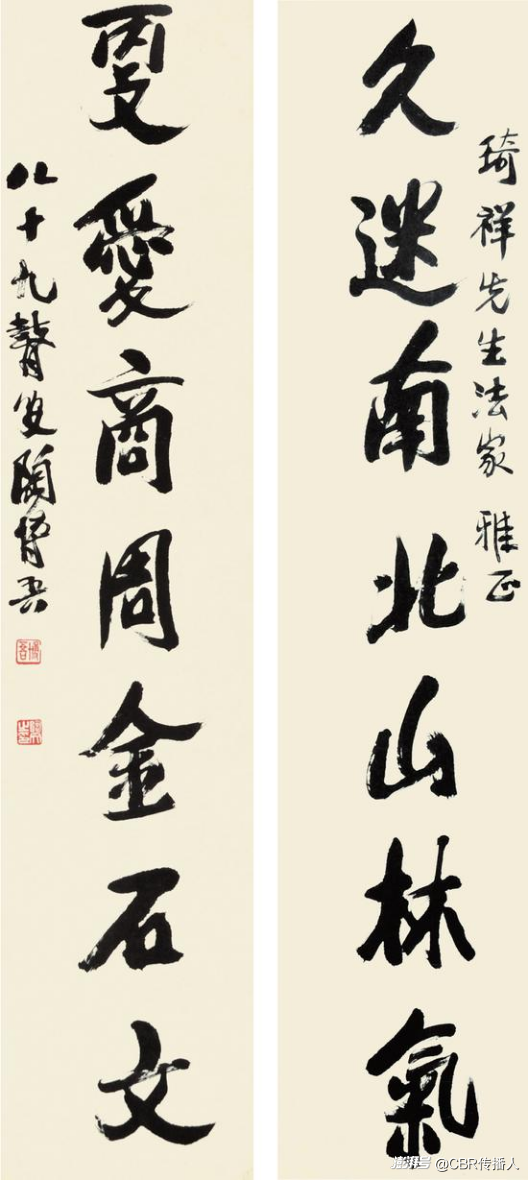 琦祥先生法家 雅正
久迷南北山林氣
㪅愛商周金石文
八十九聾叟陶博吾
博吾
澎湃号 @CBR传播人